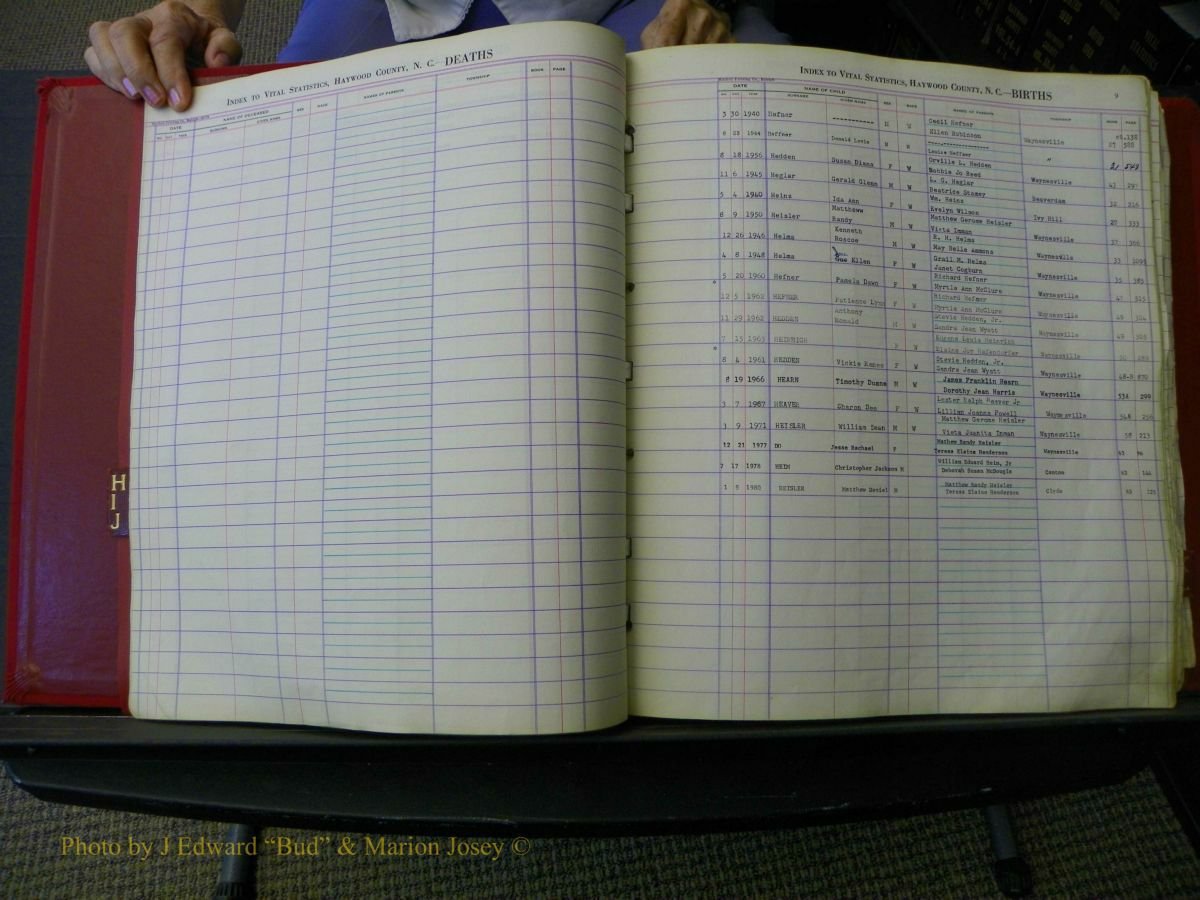 INDEX TO VITAL STATISTICS, HAYWOOD COUNTY, N. C.—DEATHS
DATE NAME OF DECEASED SEX PAGE NAMES OF PARENTS TOWNSHIP BOOK PAGE
SURNAME GIVEN NAME
H
I
J
INDEX TO VITAL STATISTICS, HAYWOOD COUNTY, N. C.—BIRTHS
9
DATE NAME OF CHILD SEX RACE NAMES OF PARENTS TOWNSHIP BOOK PAGE
SURNAME GIVEN NAME
3 30 1940 Hefner ----------- M W Cecil Hefner
Ellen Robinson Waynesville 138
8 23 1944 Heffner Donald Lewis M ---------------- 27 588
Louise Heffner
8 18 1956 Hedden Susan Diana F W Orville L. Hedden " 549
Bobbie Jo Reed
11 6 1945 Heglar Gerald Glenn M W L. G. Heglar Waynesville
Beatrice Stamey
5 4 1940 Heinz Ida Ann F W Wm. Heinz Beaverdam 316
Evelyn Wilson
8 9 1950 Heisler Matthew Randy M W Matthew Gerome Heisler Ivy Hill 333
Vista Inman
12 26 1946 Helms Kenneth Roscoe M W R. H. Helms Waynesville 37 366
May Belle Ammons
4 8 1948 Helms Sue Ellen F W Grail M. Helms Waynesville 33
Janet Cogburn
5 20 1960 Hefner Pamela Dawn F W Richard Hefner Waynesville 385
Myrtle Ann McClure
12 5 1962 HEFNER Patience Lynn F W Richard Hefner Waynesville 315
Myrtle Ann McClure
11 29 1962 HEDDEN Anthony Ronald M W Stevie Hedden, Jr. Waynesville
Sandra Jean Wyatt
7 15 1963 HEINRICH F W Eugene Louis Heinrich Waynesville
8 4 1961 HEDDEN Vickie Renee F W Stevie Hedden, Jr. Waynesville
Sandra Jean Wyatt
8 19 1966 HEARN Timothy Duane M W James Franklin Hearn Waynesville 299
Dorothy Jean Harris
3 7 1967 HEAVER Sharon Dee F W Lester Ralph Heaver Jr Waynesville
Lillian Joanna Powell
3 9 1971 HEISLER William Dean M W Matthew Gerome Heisler
Vista Juanita Inman Waynesville 58 213
12 21 1977 DO Jesse Rachael F Mathew Randy Heisler
Teresa Elaine Henderson Waynesville 96
7 17 1978 HEIN Christopher Jackson M William Edward Hein, Jr
Deborah Susan McDougle Canton 144
1 8 1980 HEISLER Matthew Daniel M Matthew Randy Heisler
Teresa Elaine Henderson Clyde 125
Photo by J Edward “Bud” & Marion Josey ©